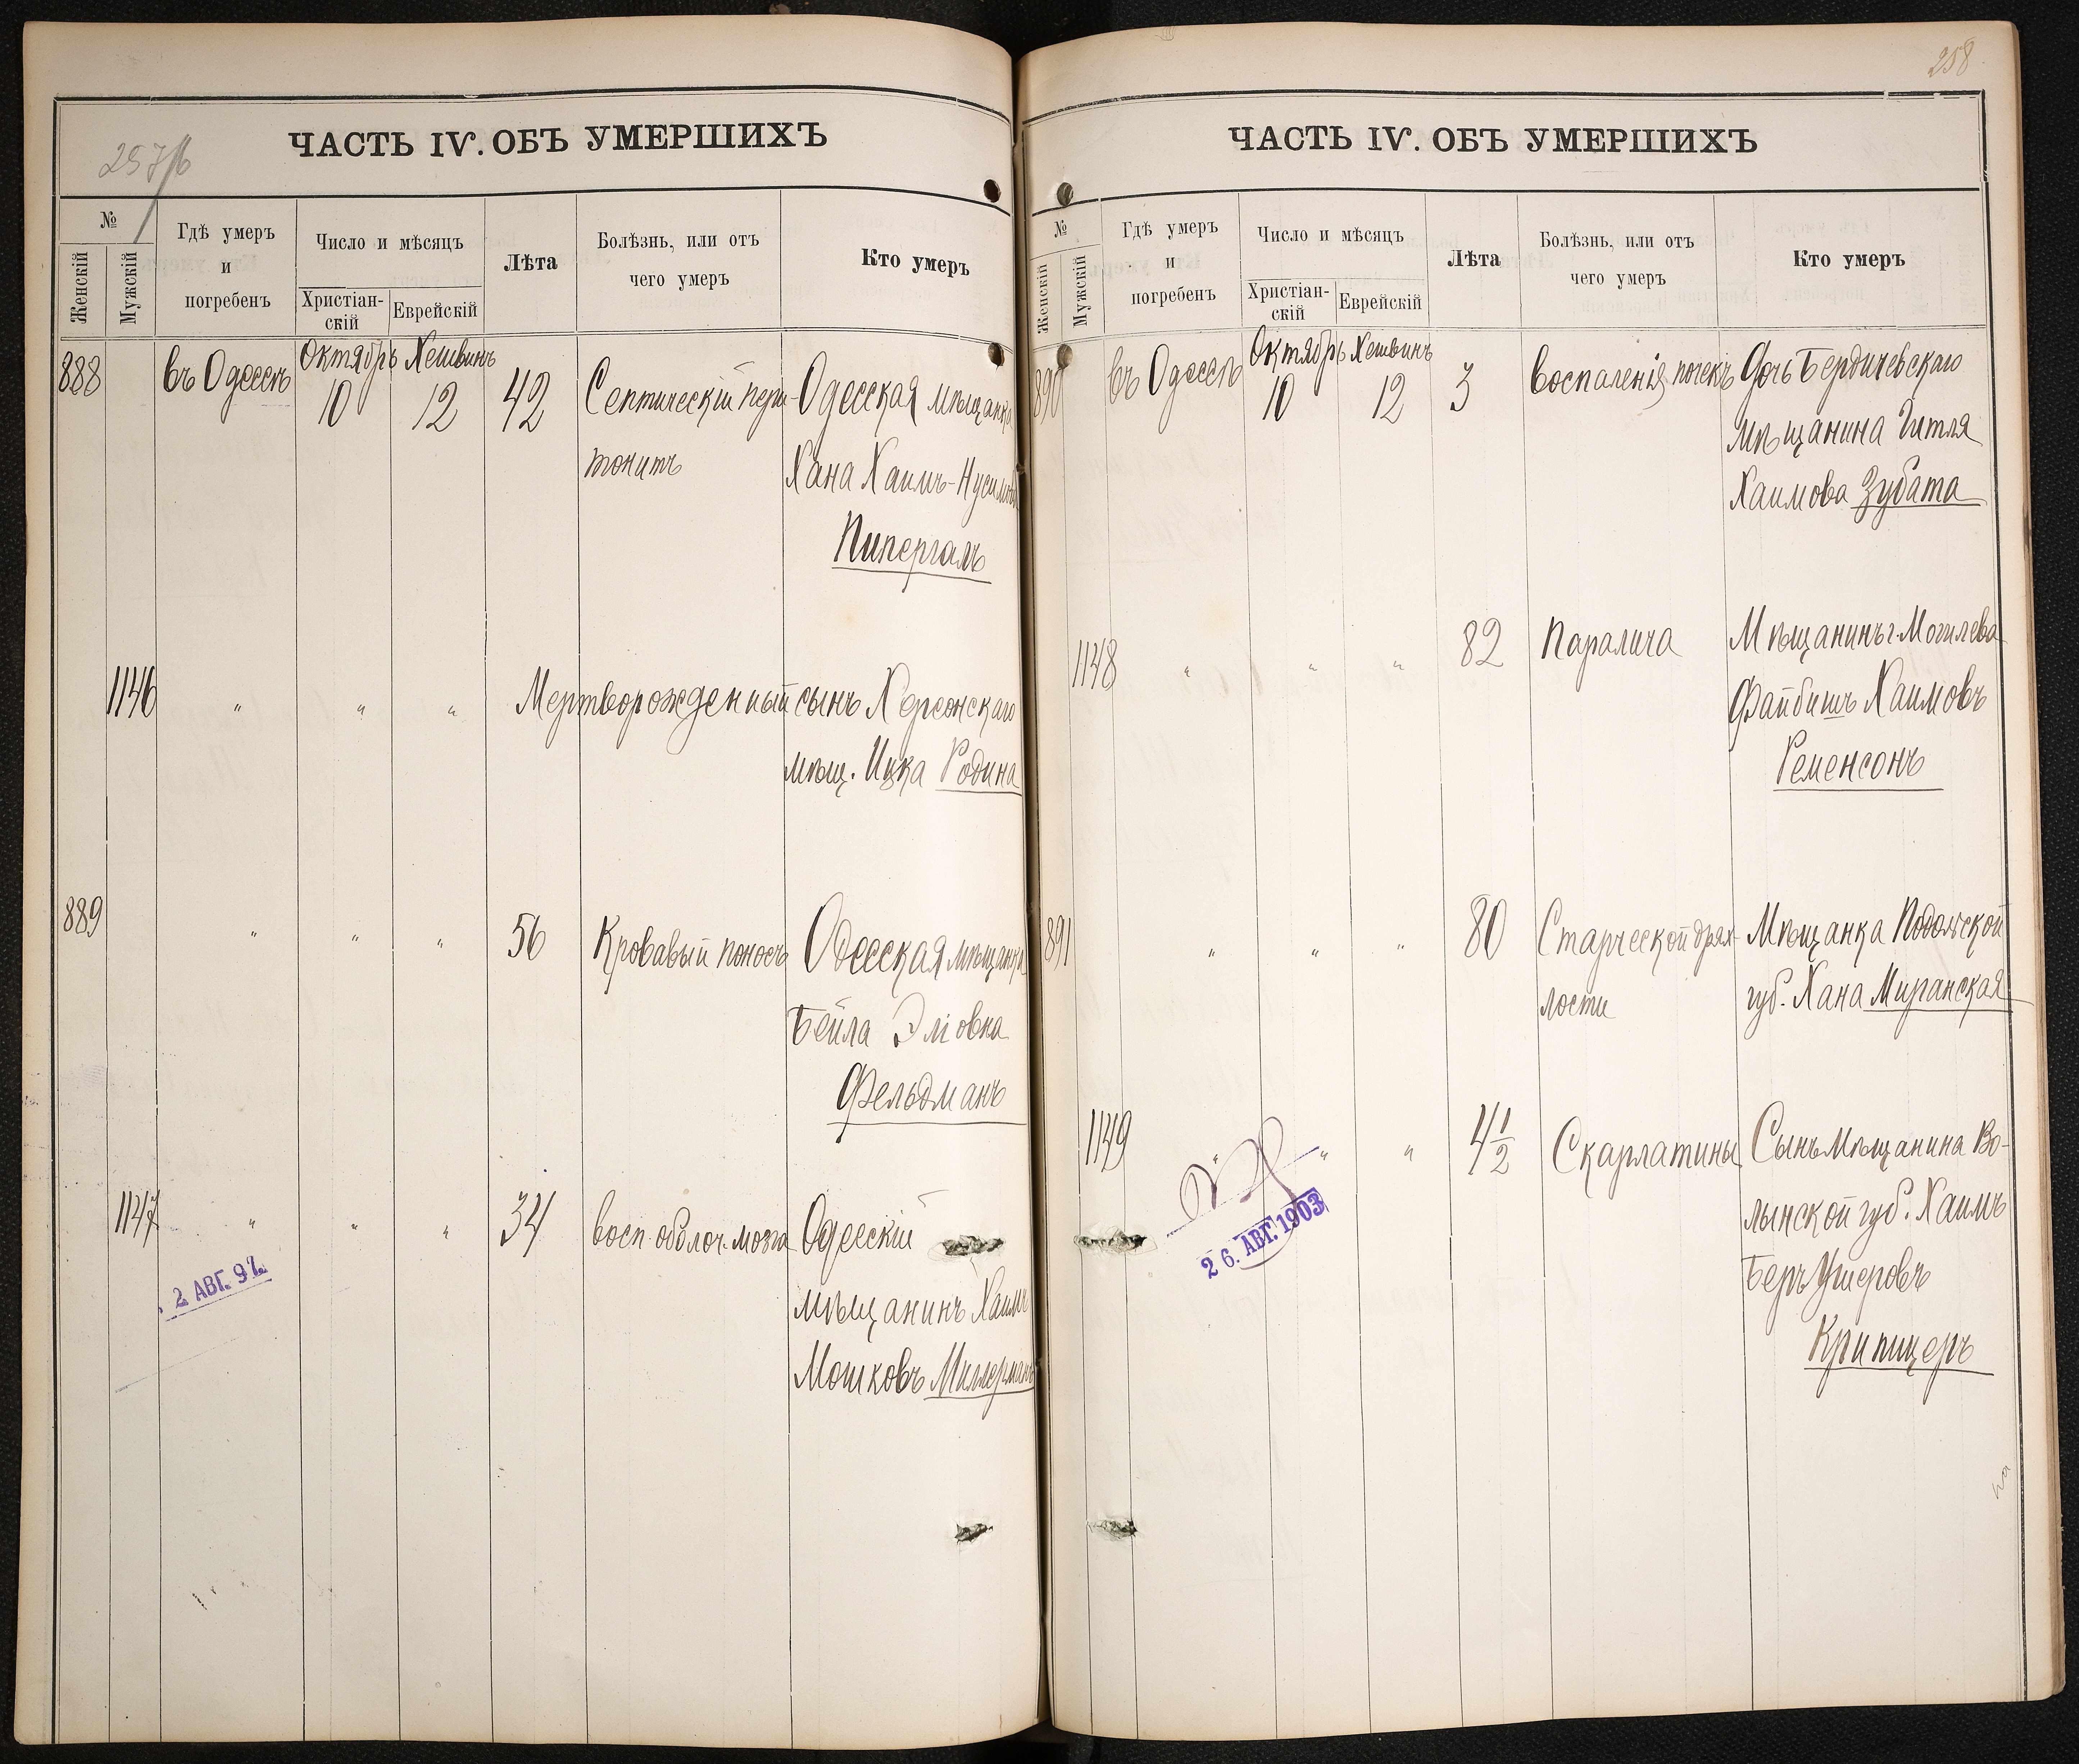 257/б
ЧАСТЬ IV. ОБЪ УМЕРШИХЪ
№
Женскій
Мужскій
Гдѣ умеръ
и
погребенъ
Число и мѣсяцъ
Христіан-
скій
Еврейскій
Лѣта
Болѣзнь, или отъ
чего умеръ
Кто умеръ
888 въ Одессѣ Октябрь 10 Хешвинъ 12 42 Септическій пери- Одесская мѣщанка
тонитъ Хана Хаимъ-Нусимова
Пипергаль
1146 " " " Мертворожденный сынъ Херсонскаго
мѣщ. Ицка Родина
889 " " " 56 Кровавый поносъ Одесская мѣщанка
Бейла Эліовна
Фельдманъ
1147 " " " 34 восп. оболоч. мозга Одесскій
мѣщанинъ Хаимъ
Мошковъ Миллерманъ
2 АВГ. 97
258
ЧАСТЬ IV. ОБЪ УМЕРШИХЪ
№
Женскій
Мужскій
Гдѣ умеръ
и
погребенъ
Число и мѣсяцъ
Христіан-
скій
Еврейскій
Лѣта
Болѣзнь, или отъ
чего умеръ
Кто умеръ
890 въ Одессѣ Октябрь 10 Хешвинъ 12 3 Воспаленія почекъ Дочь Бердичевскаго
мѣщанина Гитля
Хаимова Зубата
1148 " " " 82 Паралича Мѣщанинъ г. Могилева
Файбишъ Хаимовъ
Ременсонъ
891 " " " 80 Старческой дрях- Мѣщанка Подольской
лости губ. Хана Миранская
1149 " " " 4 1/2 Скарлатины Сынъ мѣщанина Во-
лынской губ. Хаимъ
Беръ Ушеровъ
Крипицеръ
26. АВГ. 1903